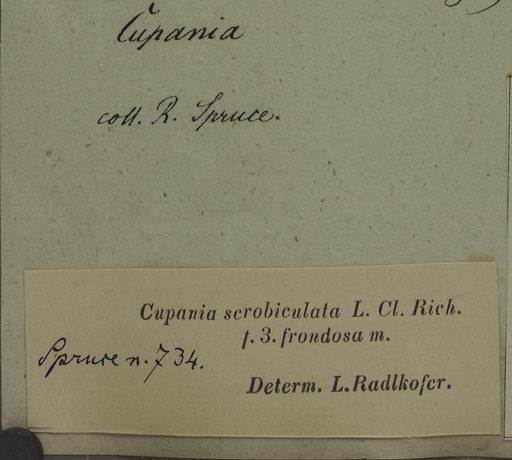 Cupania
coll. R. Spruce.
Cupania scrobiculata L. Cl. Rich.
f. 3. frondosa m.
Spruce n. 734.
Determ. L. Radlkofer.